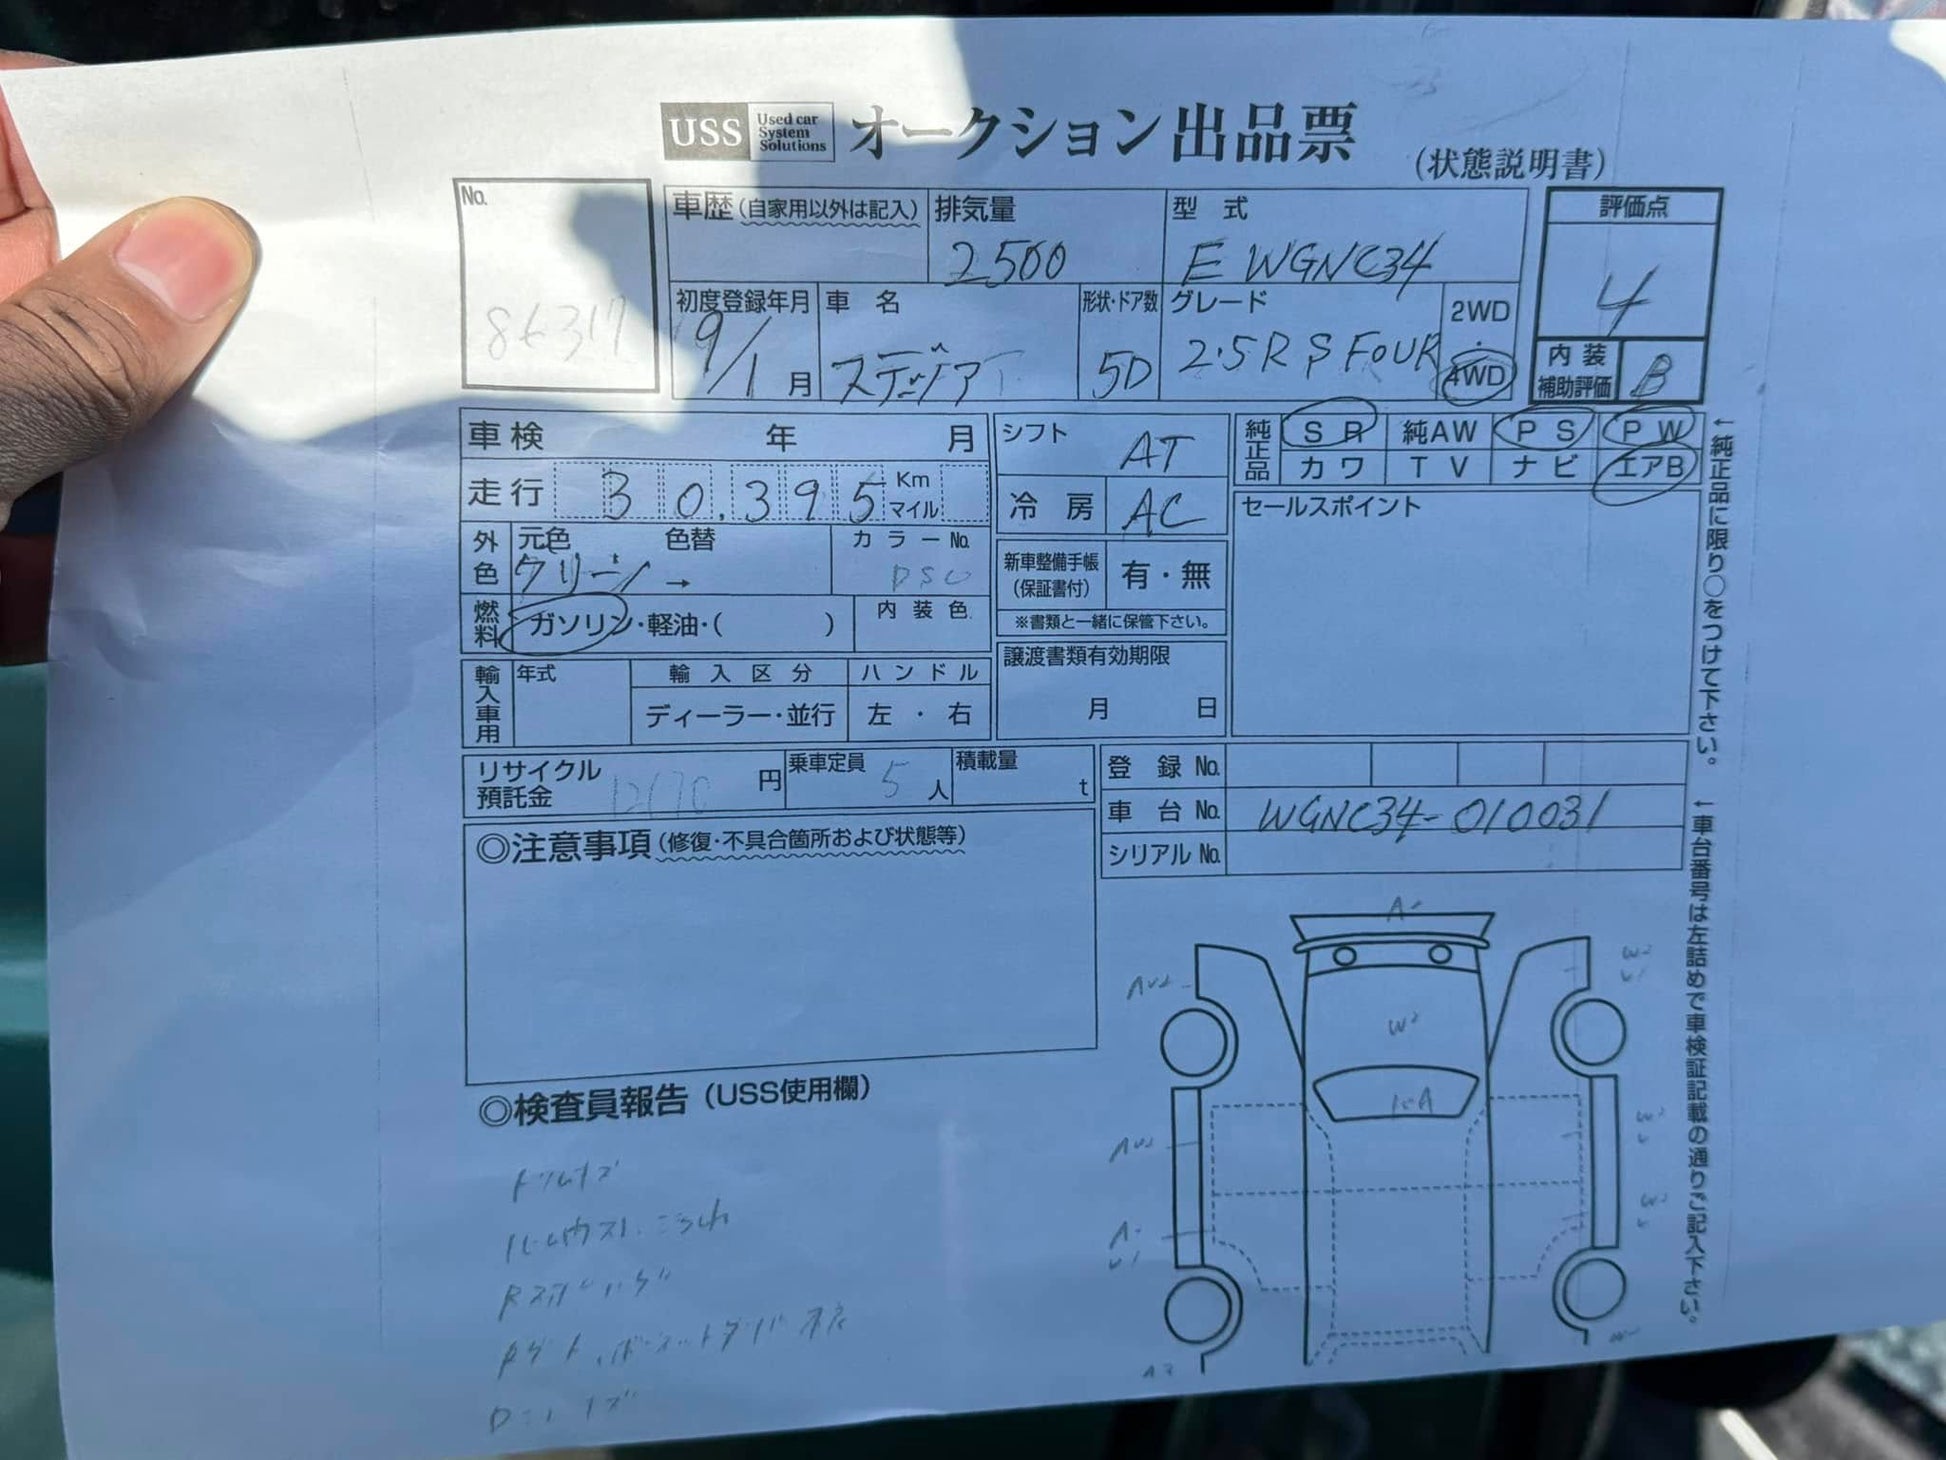 USS Used car System Solutions オークション出品票 (状態説明書)
No. 86317
車歴(自家用以外は記入)
排気量 2500
型式 E WGNC34
評価点 4
初度登録年月 9/1月
車名 ステージア
形状・ドア数 5D
グレード 2.5RS FOUR
2WD・4WD
内装補助評価 B
車検 年 月
走行 30.395 Km マイル
シフト AT
冷房 AC
純正品 SR 純AW PS PW
カワ TV ナビ エアB
←純正品に限り○をつけて下さい。
セールスポイント
外色 元色 グリーン → 色替
カラーNo.
燃料 ガソリン・軽油・( )
内装色
新車整備手帳(保証書付) 有・無
※書類と一緒に保管下さい。
輸入車用 年式
輸入区分 ディーラー・並行
ハンドル 左・右
譲渡書類有効期限 月 日
リサイクル預託金 円
乗車定員 5人
積載量 t
登録No.
車台No. WGNC34-010031
シリアルNo.
←車台番号は左詰めで車検証記載の通りご記入下さい。
◎注意事項(修復・不具合箇所および状態等)
◎検査員報告(USS使用欄)
W2